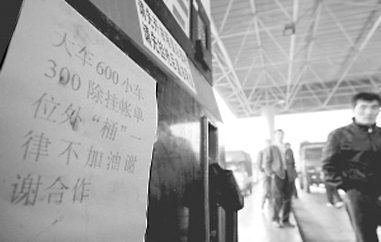 大车600小车
300除挂帐单
位外“桶”一
律不加油谢
谢合作